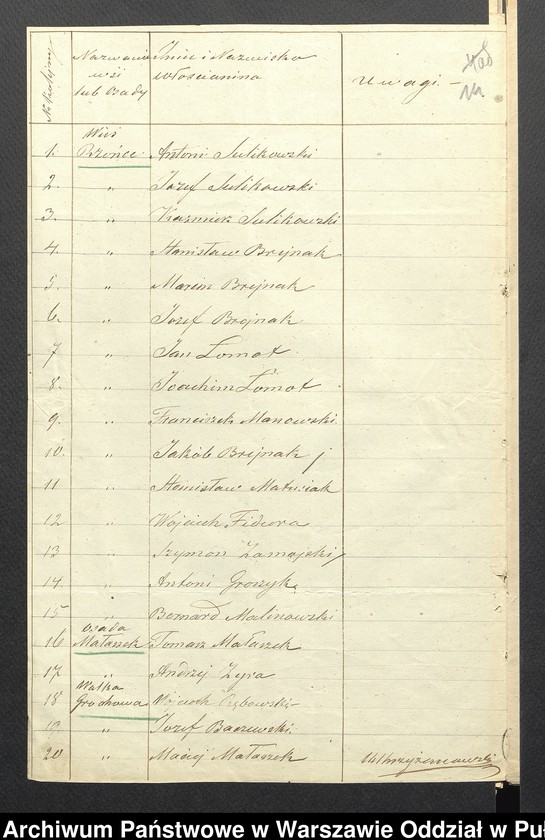 № kolejny
Nazwanie
wsi
lub Osady
Imie i Nazwisko
włościanina
Uwagi.
Wieś
1. Brzońce Antoni Sulikowski
2. „ Jozef Sulikowski
3. „ Kazmierz Sulikowski
4. „ Stanisław Brejnak
5. „ Marcin Brejnak
6. „ Jozef Brejnak
7 „ Jan Łomot
8. „ Joachim Łomot
9. „ Franciszek Manowski
10. „ Jakób Brejnak
11 „ Stanisław Matusiak
12 „ Wojciech Fidura
13 „ Szymon Zamojski
14 „ Antoni Grozyk
15 „ Bernard Malinowski
Osada
16 Mataszek Tomasz Mataszek
17 „ Andrzej Zyra
Wólka
18 Grochowa Wojciech Dębowski
19. „ Jozef Baczewski
20 „ Maciej Mataszek
Archiwum Państwowe w Warszawie Oddział w Pu